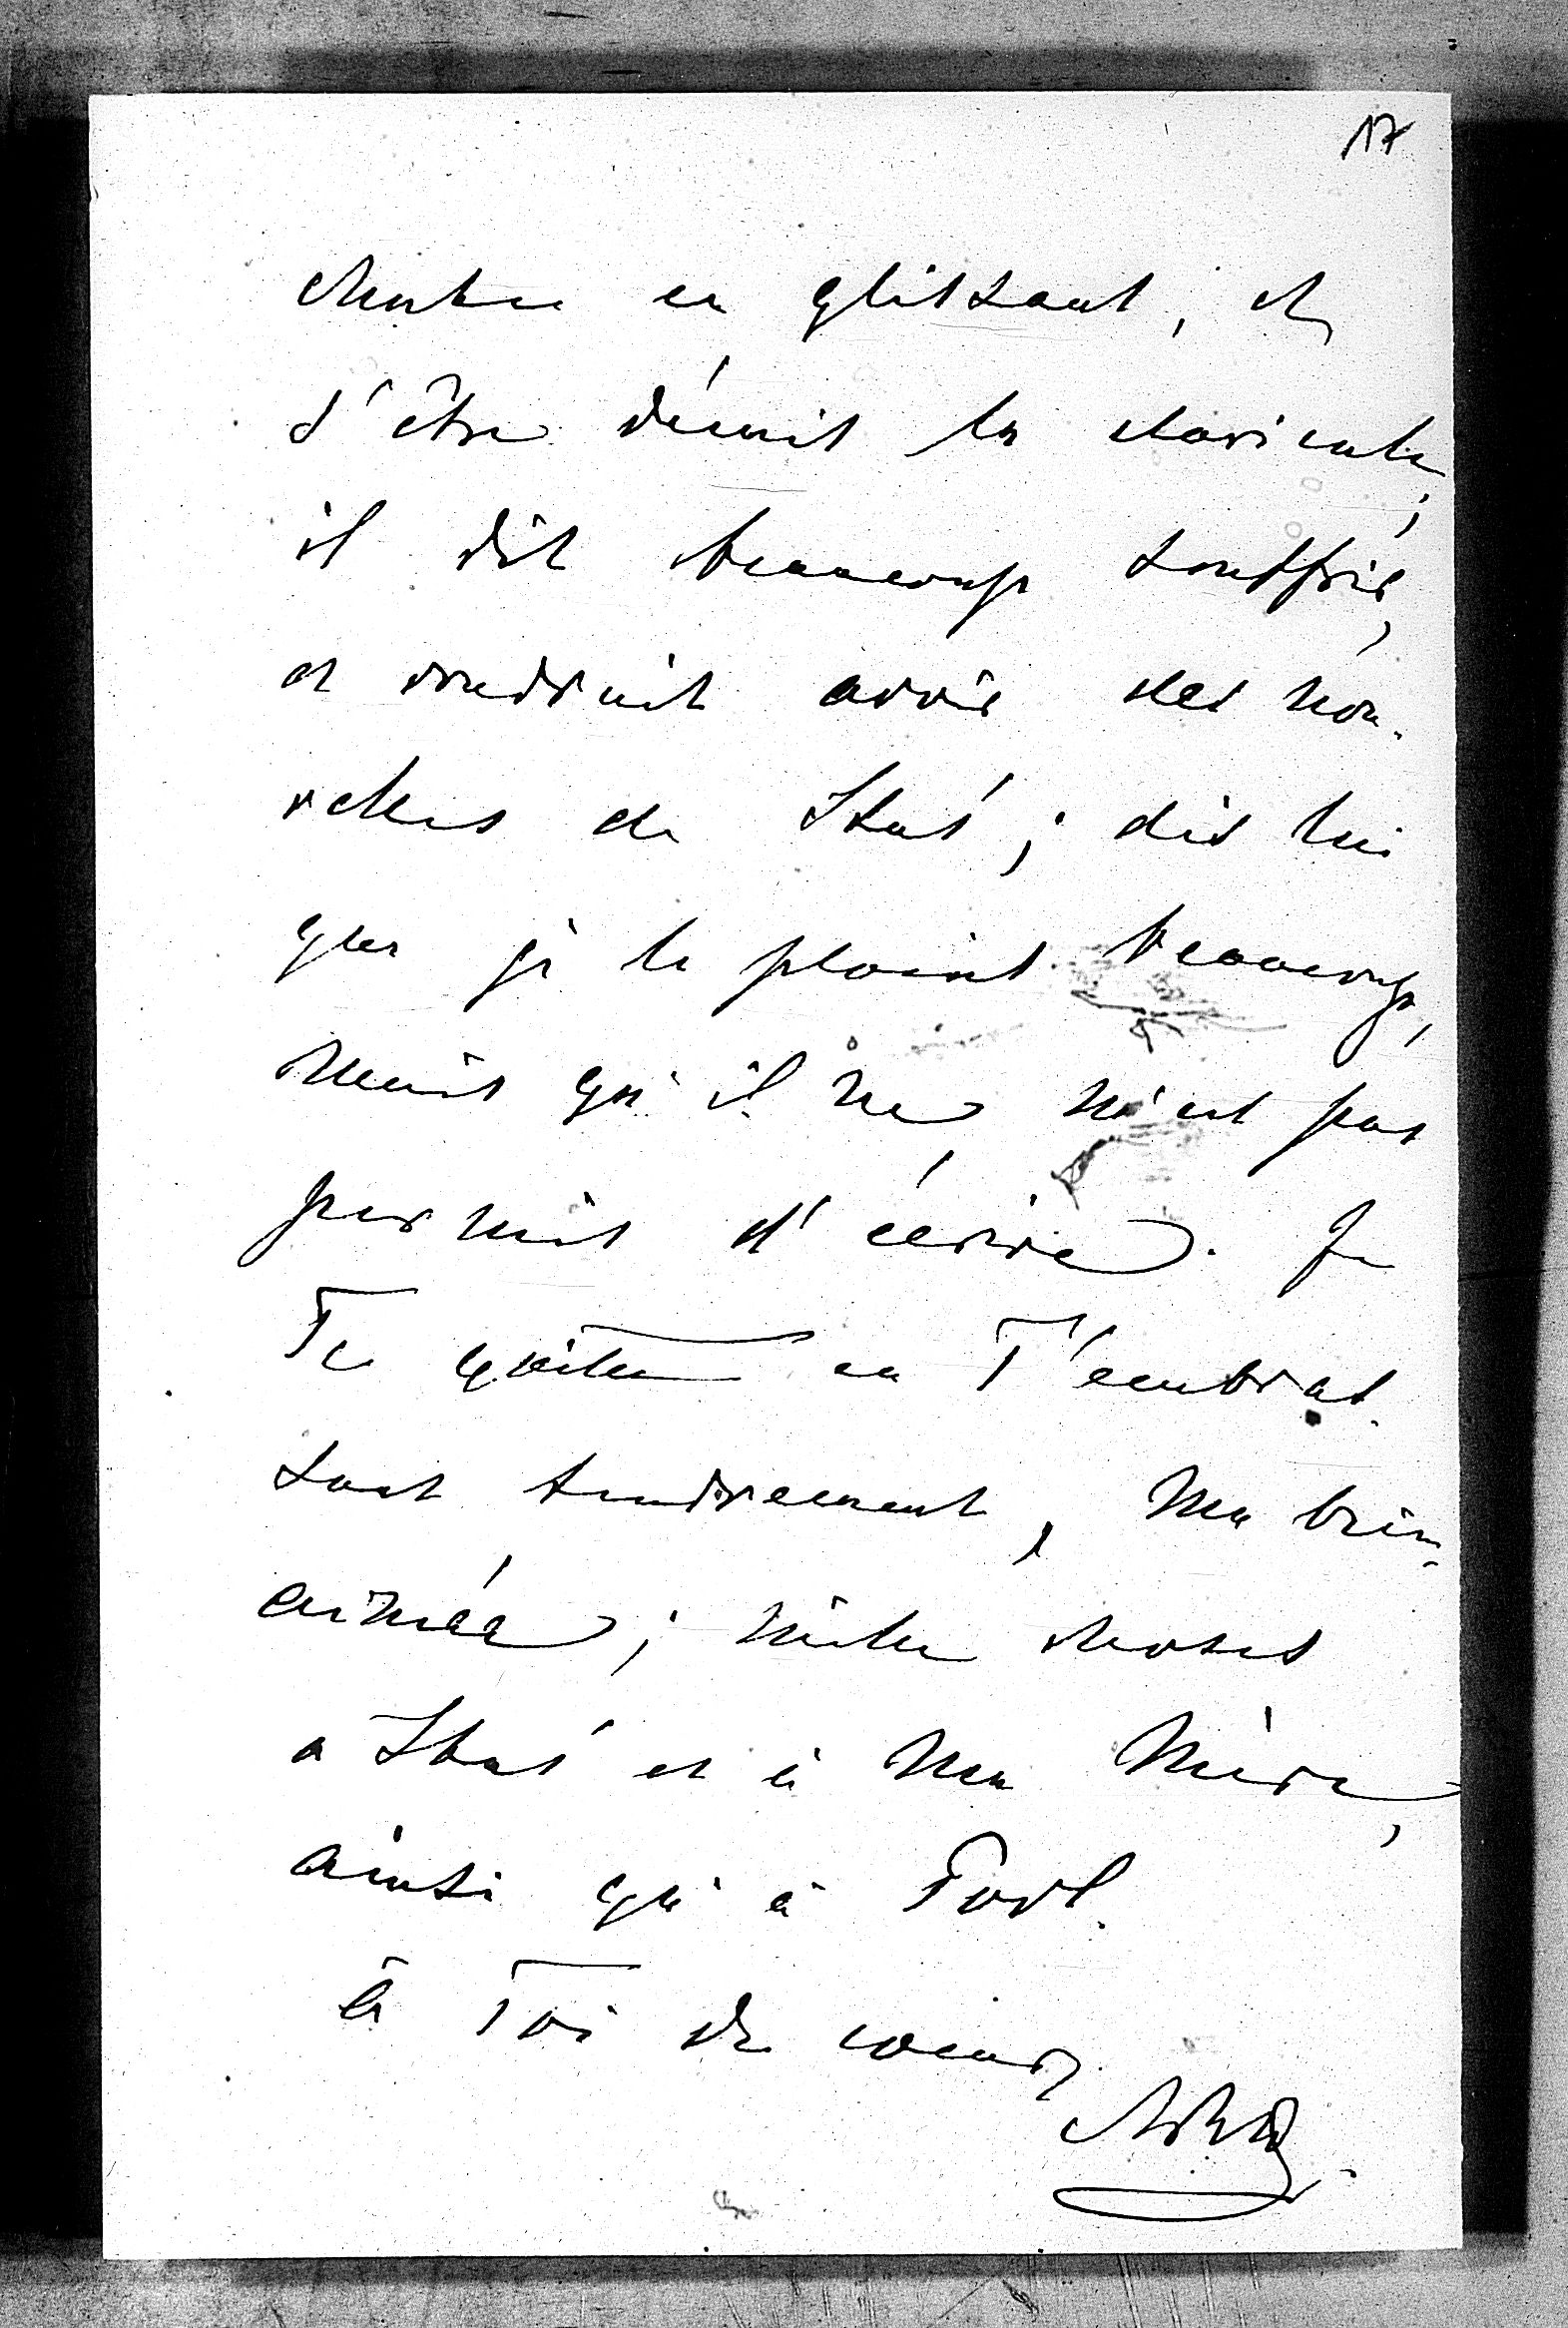 17
chuter en glissant, et
s'être démis la clavicule;
il dit beaucoup souffrir,
et voudrait avoir des nou-
velles de Staś; dis lui
que je le plains beaucoup,
mais qu'il ne m'est pas
permis d'écrire. Je
Te quitte en T'embras-
sant tendrement, Ma bien-
aimée; mille choses
a Staś et à Ma Mère,
ainsi qu'à
à Toi de cœur